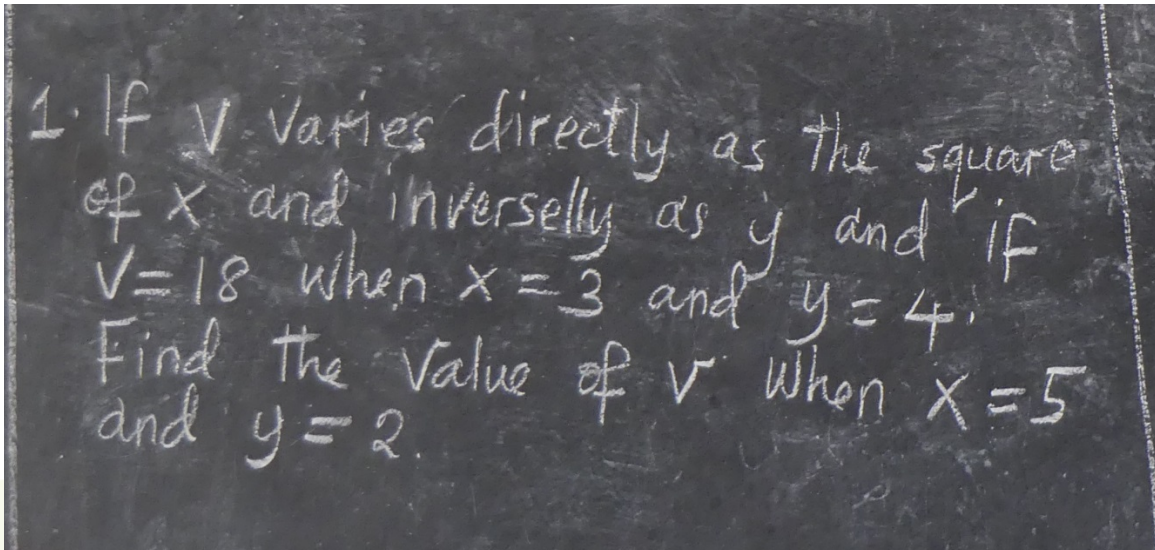 1. If V varies directly as the square
of x and inverselly as y and if
V=18 when x=3 and y=4.
Find the value of V when x=5
and y=2.